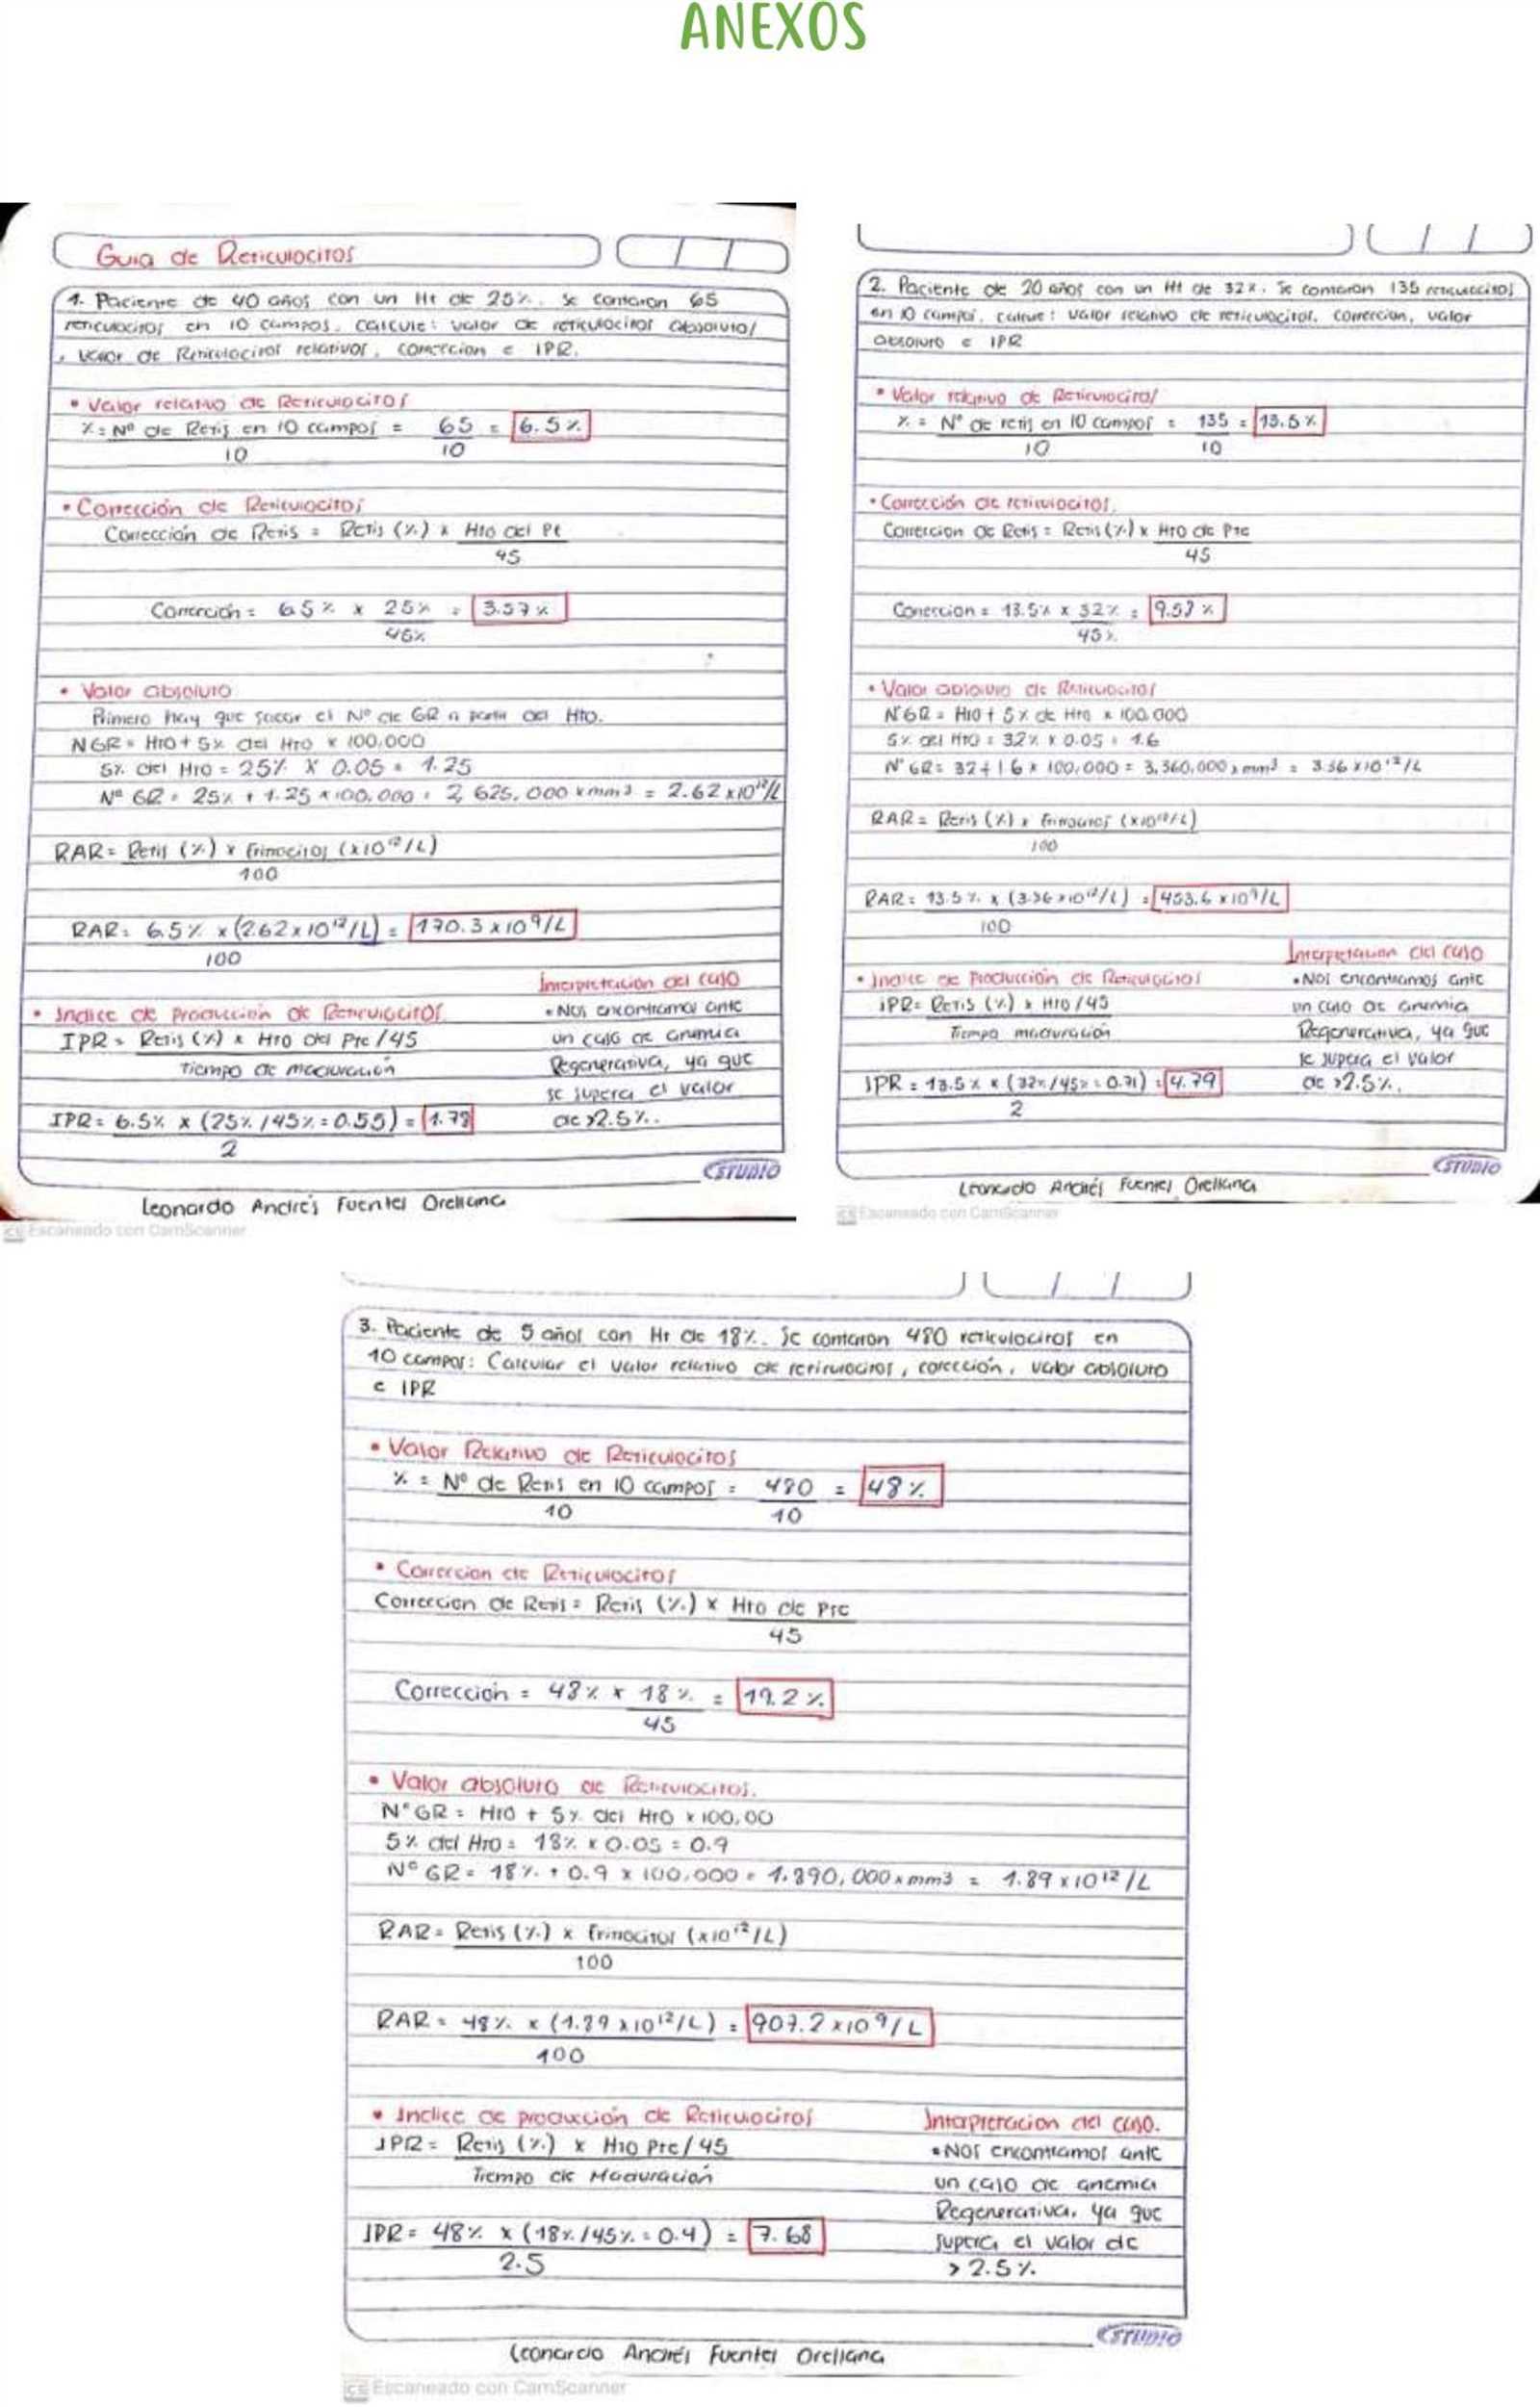 ANEXOS
Guia de Reticulocitos
1. Paciente de 40 años con un Ht de 25%. Se contaron 65
reticulocitos en 10 campos. Calcule: valor de reticulocitos absoluto/
, valor de Reticulocitos relativos, corrección e IPR.
• Valor relativo de Reticulocitos
% = Nº de Retis en 10 campos = 65 = 6.5%
10 10
• Corrección de Reticulocitos
Corrección de Retis = Retis (%) x Hto del Pt
45
Corrección = 6.5% x 25% = 3.57%
45%
• Valor absoluto
Primero hay que sacar el Nº de GR a partir del Hto.
NGR = Hto + 5% del Hto x 100,000
5% del Hto = 25% x 0.05 = 1.25
Nº GR = 25% + 1.25 x 100,000 = 2,625,000 x mm3 = 2.62 x10¹²/L
RAR = Retis (%) x Eritrocitos (x10¹²/L)
100
RAR = 6.5% x (2.62 x 10¹²/L) = 170.3 x 10⁹/L
100
• Indice de producción de Reticulocitos
IPR = Retis (%) x Hto del Pte/45
Tiempo de maduración
IPR = 6.5% x (25%/45% = 0.55) = 1.78
2
Interpretación del caso
• Nos encontramos ante
un caso de anemia
Regenerativa, ya que
se supera el valor
de >2.5%.
ESTUDIO
Leonardo Andrés Fuentes Orellana
CS Escaneado con CamScanner
2. Paciente de 20 años con un Ht de 32%. Se contaron 135 reticulocitos
en 10 campos. calcule: valor relativo de reticulocitos, corrección, valor
absoluto e IPR
• Valor relativo de Reticulocitos
% = Nº de retis en 10 campos = 135 = 13.5%
10 10
• Corrección de reticulocitos.
Corrección de Retis = Retis (%) x Hto de Pte
45
Corrección = 13.5% x 32% = 9.58%
45%
• Valor absoluto de Reticulocitos
NºGR = Hto + 5% de Hto x 100,000
5% del Hto = 32% x 0.05 = 1.6
Nº GR = 32 + 1.6 x 100,000 = 3,360,000 x mm3 = 3.36 x10¹²/L
RAR = Retis (%) x Eritrocitos (x10¹²/L)
100
RAR = 13.5% x (3.36 x10¹²/L) = 453.6 x10⁹/L
100
• Indice de Producción de Reticulocitos
IPR = Retis (%) x Hto/45
Tiempo maduración
IPR = 13.5% x (32%/45% = 0.71) = 4.79
2
Interpretación del caso
• Nos encontramos ante
un caso de anemia
Regenerativa, ya que
se supera el valor
de >2.5%.
ESTUDIO
Leonardo Andrés Fuentes Orellana
CS Escaneado con CamScanner
3. Paciente de 5 años con Ht de 18%. Se contaron 480 reticulocitos en
10 campos: Calcular el valor relativo de reticulocitos, corección, valor absoluto
e IPR
• Valor Relativo de Reticulocitos
% = Nº de Retis en 10 campos = 480 = 48%
10 10
• Corrección de Reticulocitos
Corrección de Retis = Retis (%) x Hto de Pte
45
Corrección = 48% x 18% = 19.2%
45
• Valor absoluto de Reticulocitos.
NºGR = Hto + 5% del Hto x 100,00
5% del Hto = 18% x 0.05 = 0.9
Nº GR = 18% + 0.9 x 100,000 = 1,890,000 x mm3 = 1.89 x 10¹²/L
RAR = Retis (%) x Eritrocitos (x10¹²/L)
100
RAR = 48% x (1.89 x 10¹²/L) = 907.2 x10⁹/L
100
• Indice de producción de Reticulocitos
IPR = Retis (%) x Hto Pte/45
Tiempo de Maduración
IPR = 48% x (18%/45% = 0.4) = 7.68
2.5
Interpretación del caso.
• Nos encontramos ante
un caso de anemia
Regenerativa, ya que
supera el valor de
> 2.5%.
ESTUDIO
Leonardo Andrés Fuentes Orellana
CS Escaneado con CamScanner